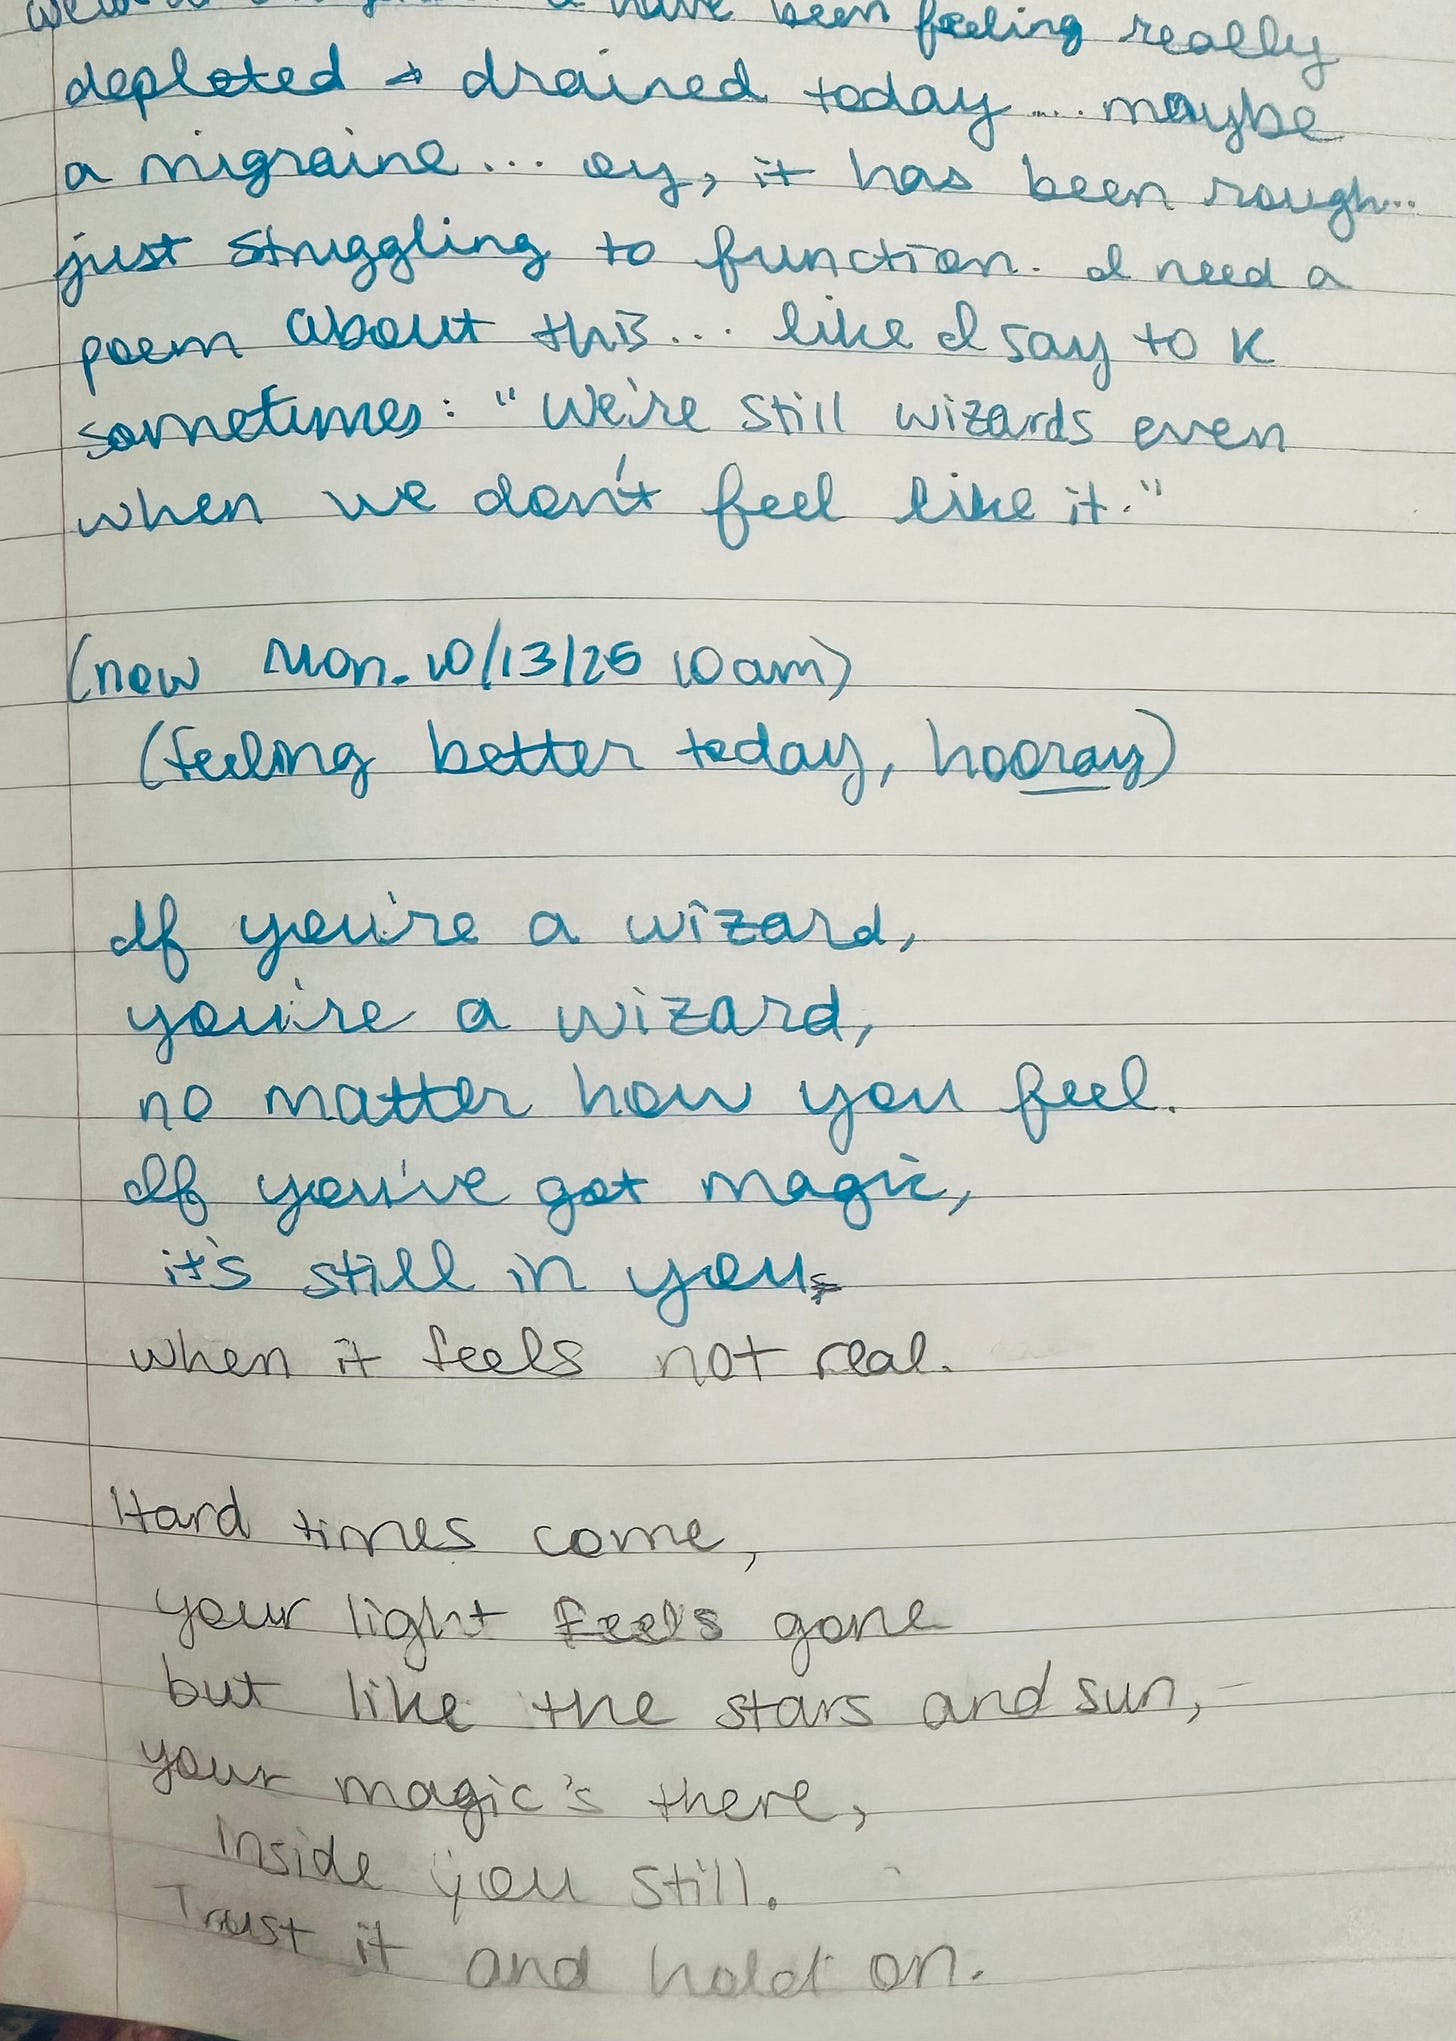 have been feeling really
depleted & drained today.... maybe
a migraine... oy, it has been rough...
just struggling to function. I need a
poem about this... like I say to K
sometimes: "We're still wizards even
when we don't feel like it."
(now Mon. 10/13/25 10am)
(feeling better today, hooray)
If you're a wizard,
you're a wizard,
no matter how you feel.
If you've got magic,
it's still in you,
when it feels not real.
Hard times come,
your light feels gone
but like the stars and sun,
your magic's there,
Inside you still.
Trust it and hold on.